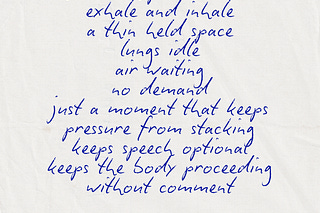 exhale and inhale
a thin held space
lungs idle
air waiting
no demand
just a moment that keeps
pressure from stacking
keeps speech optional
keeps the body proceeding
without comment